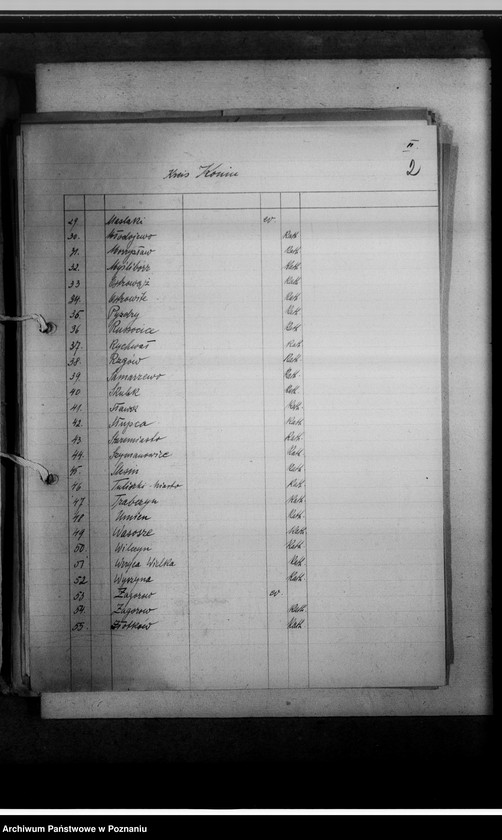 II
2
Kreis Konin
29. Maslaki ev.
30. Młodojewo Kath.
31. Morzysław Kath.
32. Myślibórz Kath.
33 Ostrowąż Kath.
34. Ostrowite Kath.
35. Pyzdry Kath.
36 Russocice Kath.
37. Rychwał Kath.
38. Rzgów Kath.
39. Samarzewo Kath.
40 Skulsk Kath.
41. Sławsk Kath.
42. Słupca Kath.
43 Staremiasto Kath.
44. Szymanowice Kath.
45. Ślesin Kath.
46 Tuliszki-miasto Kath.
47 Trąbczyn Kath.
48 Umien Kath.
49 Wąsosze Kath.
50. Wilczyn Kath.
51 Wrząca Wielka Kath.
52 Wyszyna Kath.
53 Zagorow ev.
54. Zagorow Kath.
55. Złotkow Kath.
Archiwum Państwowe w Poznaniu